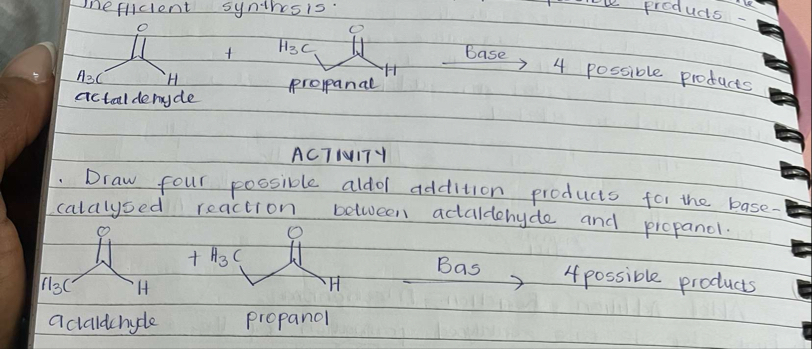 inefficient synthesis.
products -
O
H3C
H
actaldehyde
+
H3C
O
H
propanal
Base
4 possible products
ACTIVITY
. Draw four possible aldol addition products for the base-
catalysed reaction between actaldehyde and propanol.
O
H3C
H
actaldehyde
+ H3C
O
H
propanol
Bas
4 possible products